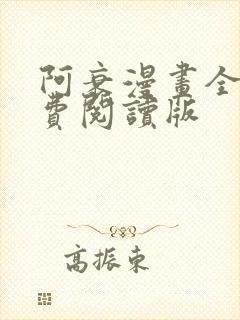 阿衰漫畫全
費閱讀版
高振東